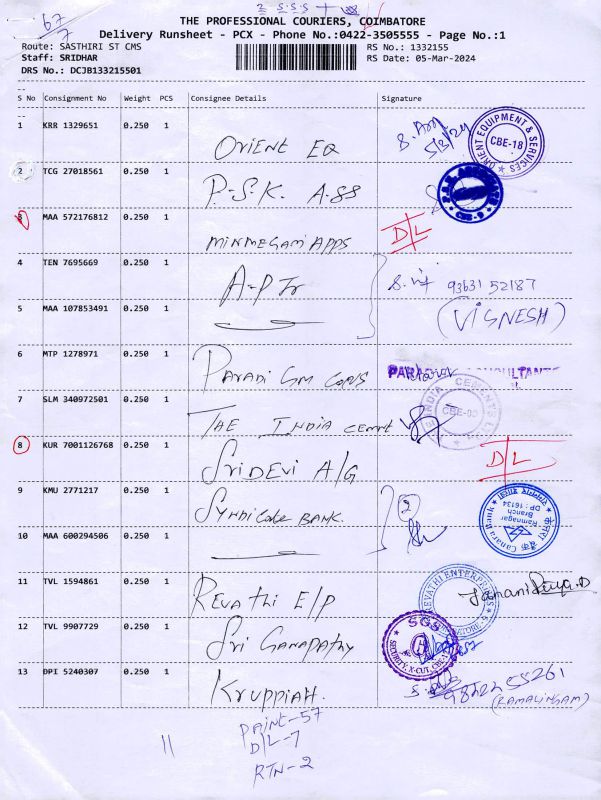 2 S.S.S
67
7
THE PROFESSIONAL COURIERS, COIMBATORE
Delivery Runsheet - PCX - Phone No.:0422-3505555 - Page No.:1
Route: SASTHIRI ST CMS RS No.: 1332155
Staff: SRIDHAR RS Date: 05-Mar-2024
DRS No.: DCJB133215501
S No Consignment No Weight PCS Consignee Details Signature
1 KRR 1329651 0.250 1 ORIENT EQ 5/3/24 ORIENT EQUIPMENT & SERVICES CBE-18
2 TCG 27018561 0.250 1 P.S.K. A-SS CBE-9
3 MAA 572176812 0.250 1 MINMEGAM APPS D/L
4 TEN 7695669 0.250 1 A-P Jr 93631 52187
5 MAA 107853491 0.250 1 (VIGNESH)
6 MTP 1278971 0.250 1 PARADIGM CONS
7 SLM 340972501 0.250 1 THE INDIA CEMNT INDIA CEMENTS
8 KUR 7001126768 0.250 1 SRIDEVI A/G D/L
9 KMU 2771217 0.250 1 SYNDICATE BANK. 2 Canara Bank Ramnagar Branch DP: 16134
10 MAA 600294506 0.250 1
11 TVL 1594861 0.250 1 REVATHI E/P REVATHI ENTERPRISES
12 TVL 9907729 0.250 1 SRI GANAPATHY SGS
13 DPI 5240307 0.250 1 KRUPPIAH. (RAMALINGAM)
11
PAINT-57
D/L-7
RTN-2